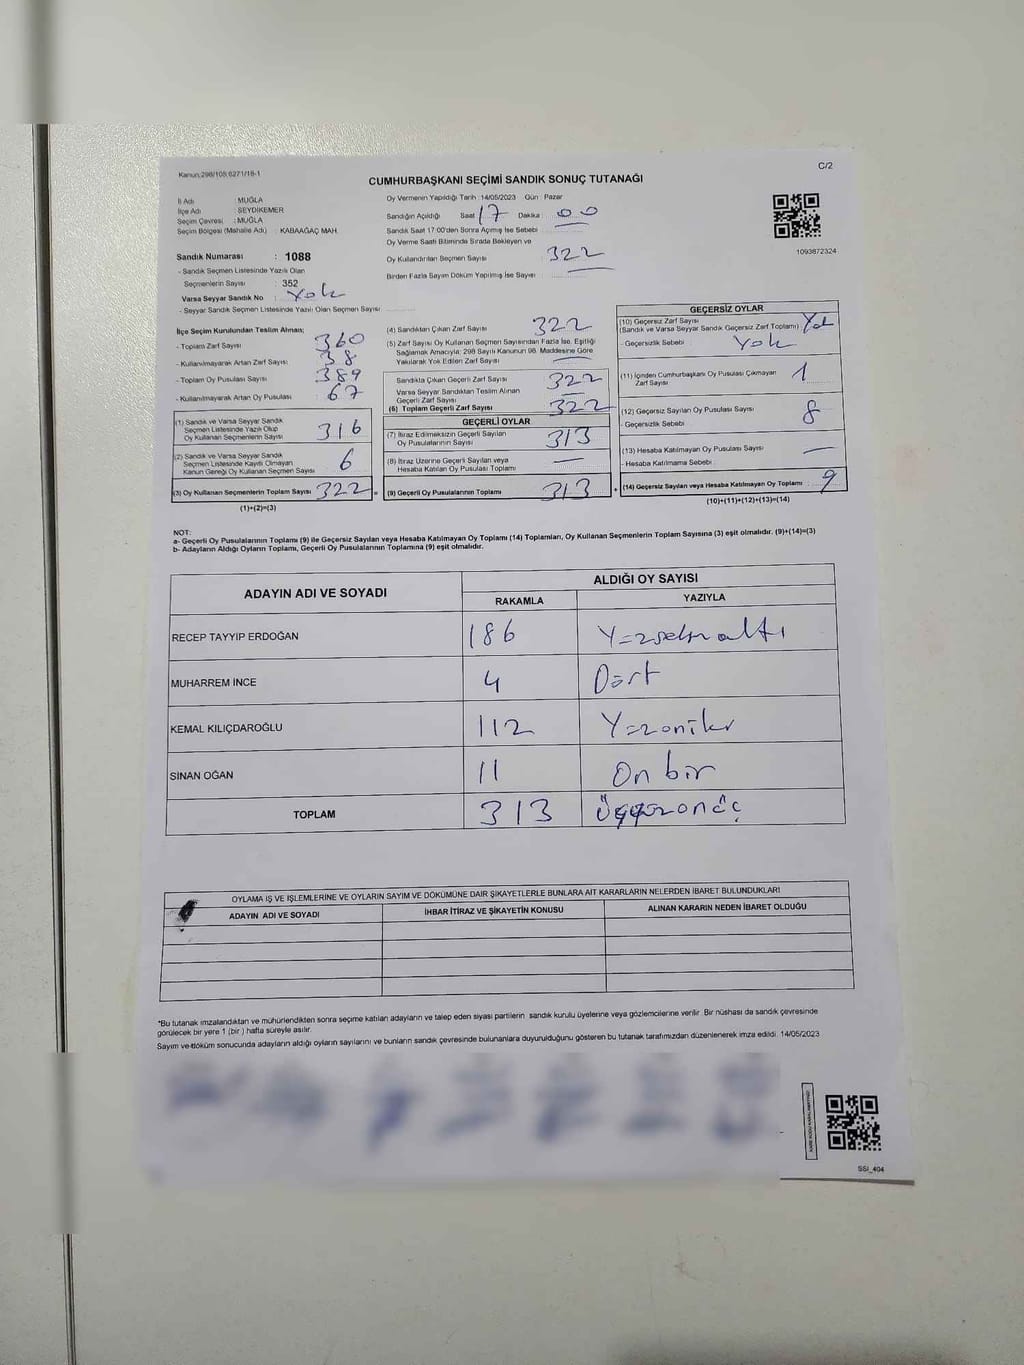 Kanun:298/105,6271/18-1
C/2
CUMHURBAŞKANI SEÇİMİ SANDIK SONUÇ TUTANAĞI
İl Adı : MUĞLA
İlçe Adı : SEYDİKEMER
Seçim Çevresi : MUĞLA
Seçim Bölgesi (Mahalle Adı) : KABAAĞAÇ MAH.
Sandık Numarası : 1088
- Sandık Seçmen Listesinde Yazılı Olan
Seçmenlerin Sayısı : 352
Varsa Seyyar Sandık No : Yok
- Seyyar Sandık Seçmen Listesinde Yazılı Olan Seçmen Sayısı
Oy Vermenin Yapıldığı Tarih : 14/05/2023 Gün : Pazar
Sandığın Açıldığı Saat 17 Dakika : 00
Sandık Saat 17:00'den Sonra Açılmış İse Sebebi
Oy Verme Saati Bitiminde Sırada Bekleyen ve
Oy Kullandırılan Seçmen Sayısı 322
Birden Fazla Sayım Döküm Yapılmış İse Sayısı
1093872324
İlçe Seçim Kurulundan Teslim Alınan;
- Toplam Zarf Sayısı : 360
- Kullanılmayarak Artan Zarf Sayısı : 38
- Toplam Oy Pusulası Sayısı : 389
- Kullanılmayarak Artan Oy Pusulası : 67
(1) Sandık ve Varsa Seyyar Sandık
Seçmen Listesinde Yazılı Olup
Oy Kullanan Seçmenlerin Sayısı 316
(2) Sandık ve Varsa Seyyar Sandık
Seçmen Listesinde Kayıtlı Olmayan
Kanun Gereği Oy Kullanan Seçmen Sayısı 6
(3) Oy Kullanan Seçmenlerin Toplam Sayısı 322 =
(1)+(2)=(3)
(4) Sandıktan Çıkan Zarf Sayısı 322
(5) Zarf Sayısı Oy Kullanan Seçmen Sayısından Fazla İse, Eşitliği
Sağlamak Amacıyla; 298 Sayılı Kanunun 98. Maddesine Göre
Yakılarak Yok Edilen Zarf Sayısı
Sandıkta Çıkan Geçerli Zarf Sayısı 322
Varsa Seyyar Sandıktan Teslim Alınan
Geçerli Zarf Sayısı
(6) Toplam Geçerli Zarf Sayısı 322
GEÇERLİ OYLAR
(7) İtiraz Edilmeksizin Geçerli Sayılan
Oy Pusulalarının Sayısı 313
(8) İtiraz Üzerine Geçerli Sayılan veya
Hesaba Katılan Oy Pusulası Toplamı —
(9) Geçerli Oy Pusulalarının Toplamı 313 +
GEÇERSİZ OYLAR
(10) Geçersiz Zarf Sayısı
(Sandık ve Varsa Seyyar Sandık Geçersiz Zarf Toplamı) Yok
- Geçersizlik Sebebi : Yok
(11) İçinden Cumhurbaşkanı Oy Pusulası Çıkmayan
Zarf Sayısı 1
(12) Geçersiz Sayılan Oy Pusulası Sayısı 8
- Geçersizlik Sebebi
(13) Hesaba Katılmayan Oy Pusulası Sayısı —
- Hesaba Katılmama Sebebi
(14) Geçersiz Sayılan veya Hesaba Katılmayan Oy Toplamı 9
(10)+(11)+(12)+(13)=(14)
NOT:
a- Geçerli Oy Pusulalarının Toplamı (9) ile Geçersiz Sayılan veya Hesaba Katılmayan Oy Toplamı (14) Toplamları, Oy Kullanan Seçmenlerin Toplam Sayısına (3) eşit olmalıdır. (9)+(14)=(3)
b- Adayların Aldığı Oyların Toplamı, Geçerli Oy Pusulalarının Toplamına (9) eşit olmalıdır.
ADAYIN ADI VE SOYADI
ALDIĞI OY SAYISI
RAKAMLA YAZIYLA
RECEP TAYYIP ERDOĞAN 186 Yüzseksenaltı
MUHARREM İNCE 4 Dört
KEMAL KILIÇDAROĞLU 112 Yüzoniki
SİNAN OĞAN 11 On bir
TOPLAM 313 Üçyüzonüç
OYLAMA İŞ VE İŞLEMLERİNE VE OYLARIN SAYIM VE DÖKÜMÜNE DAİR ŞİKAYETLERLE BUNLARA AİT KARARLARIN NELERDEN İBARET BULUNDUKLARI
ADAYIN ADI VE SOYADI İHBAR İTİRAZ VE ŞİKAYETİN KONUSU ALINAN KARARIN NEDEN İBARET OLDUĞU
*Bu tutanak imzalandıktan ve mühürlendikten sonra seçime katılan adayların ve talep eden siyasi partilerin sandık kurulu üyelerine veya gözlemcilerine verilir. Bir nüshası da sandık çevresinde
görülecek bir yere 1 (bir ) hafta süreyle asılır.
Sayım ve döküm sonucunda adayların aldığı oyların sayılarını ve bunların sandık çevresinde bulunanlara duyurulduğunu gösteren bu tutanak tarafımızdan düzenlenerek imza edildi. 14/05/2023
SSI_404